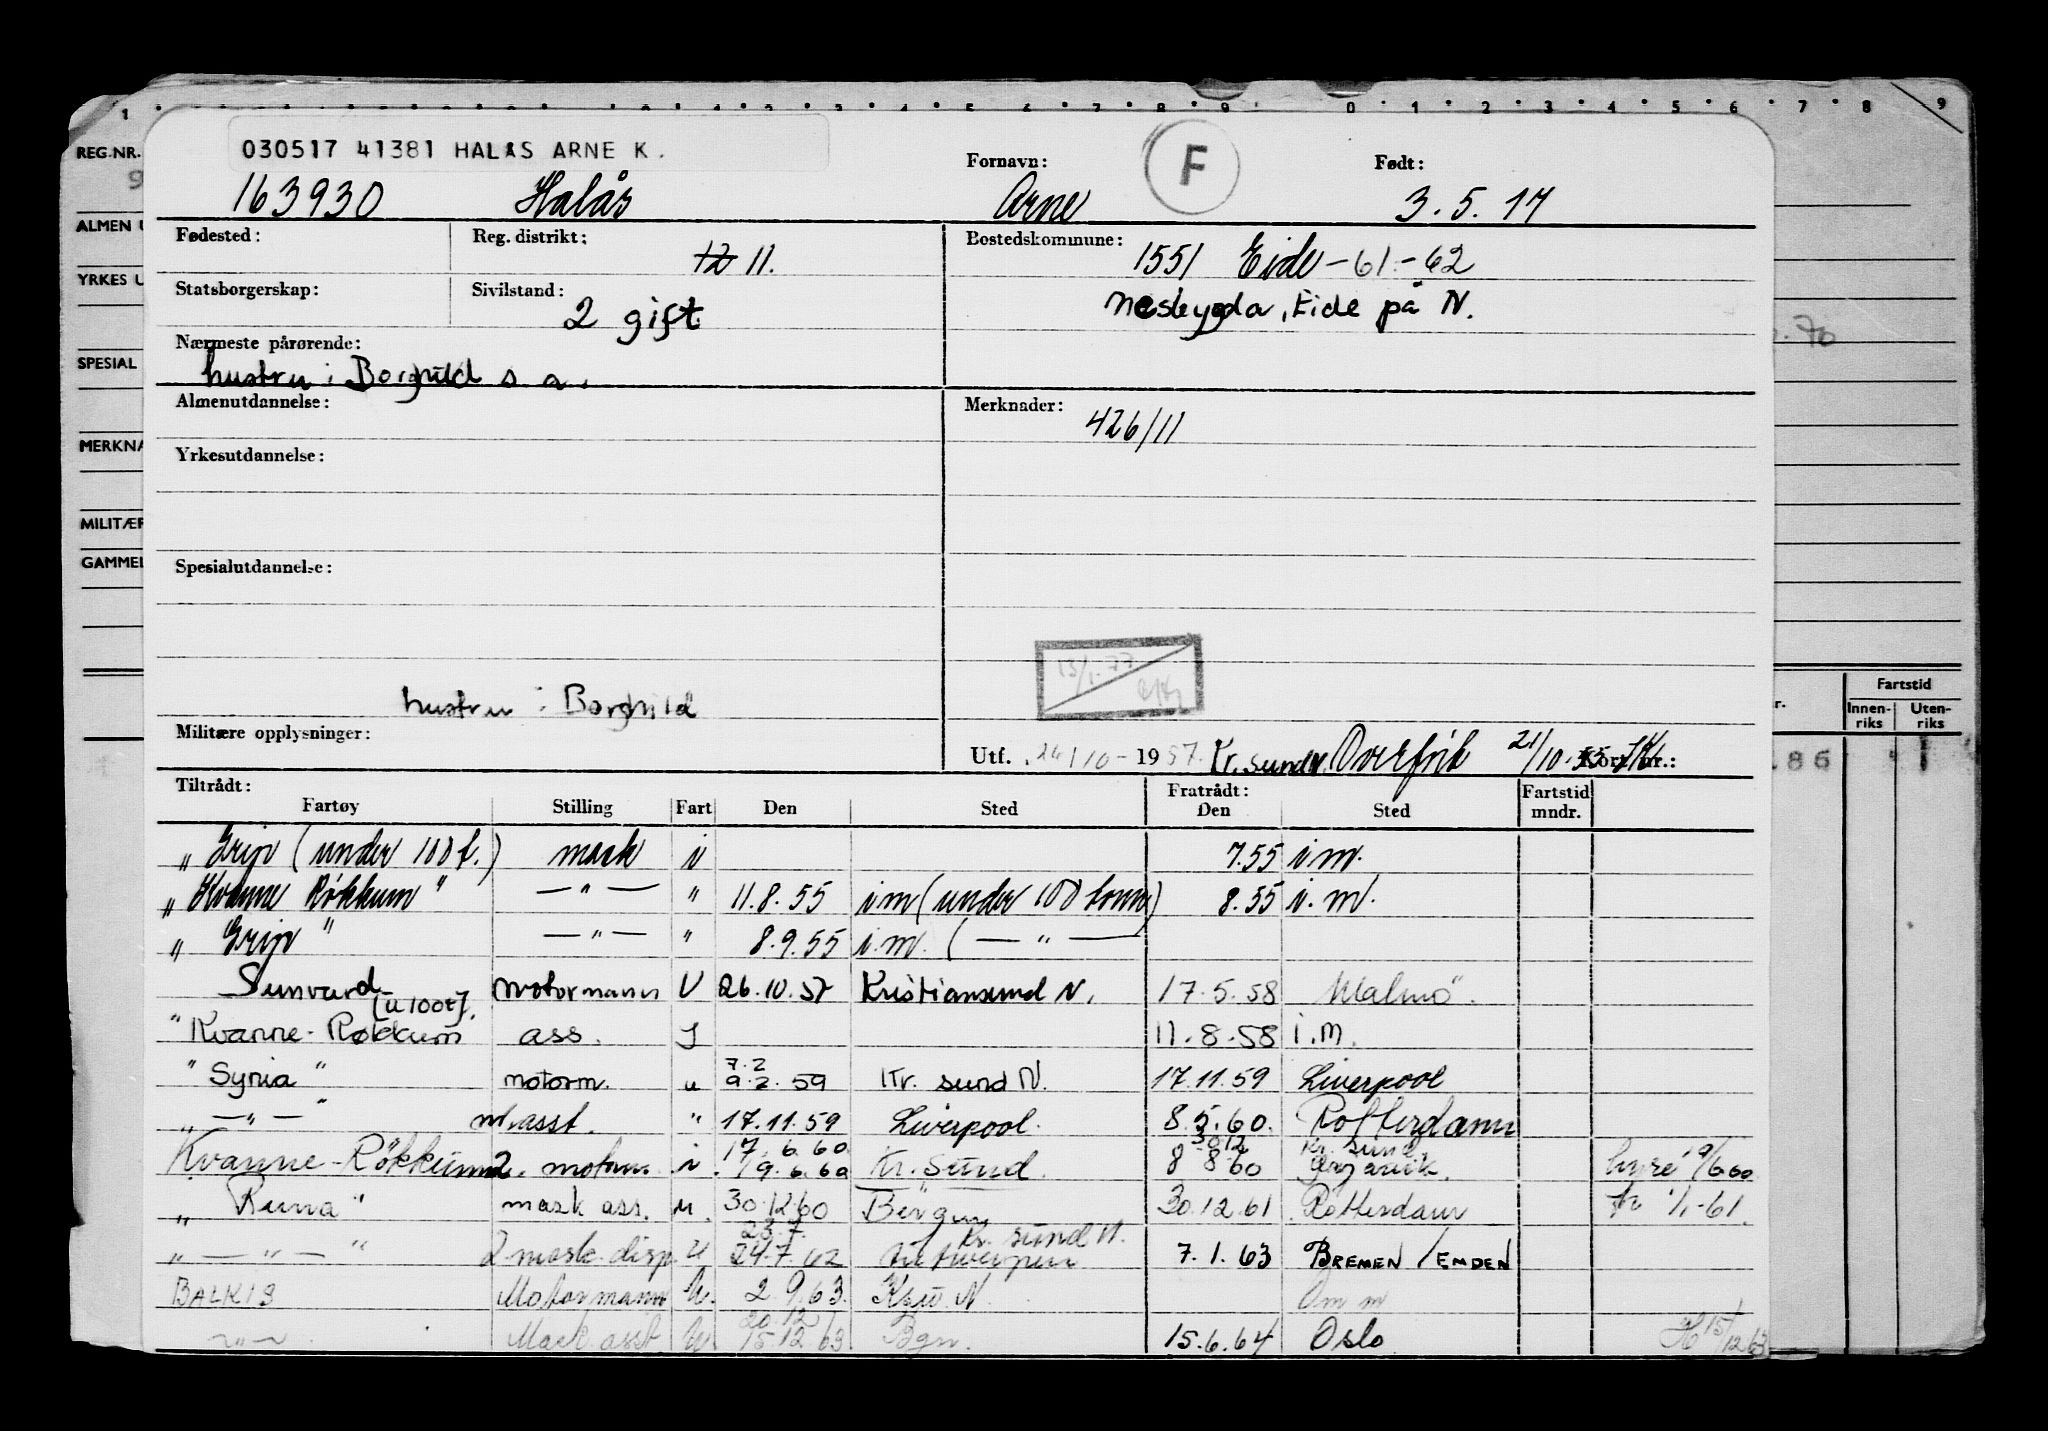 1 2 3 4 5 6 7 8 9 0 1 2 3 4 5 6 7 8 9
REG.NR.
ALMEN U
YRKES U
SPESIAL
MERKNA
MILITÆR
GAMMEL
030517 41381 HALÅS ARNE K.
Fornavn: F Født:
163930 Halås Arne 3.5.17
Fødested: Reg. distrikt: 12 11. Bostedskommune: 1551 Eide -61-62
Statsborgerskap: Sivilstand: 2 gift Nesbygda, Eide på N.
Nærmeste pårørende:
hustru: Borghild s a.
Almenutdannelse: Merknader: 426/11
Yrkesutdannelse:
Spesialutdannelse:
13/1-77
hustru: Borghild
Militære opplysninger: Utf. 24/10-1957. Kr.sund N. Overført 21/10-55 Kort nr.:
Fartstid
Innen-riks Uten-riks
Tiltrådt: Fratrådt:
Fartøy Stilling Fart Den Sted Den Sted Fartstid mndr.
„ Grip (under 100 t.) mask i 7.55 i m.
„ Kvanne Røkkum " — " — " 11.8.55 i m (under 100 tonn) 8.55 i. m.
„ Grip " — " — " 8.9.55 i.m. ( — " —
Sunvard motormann U 26.10.57 Kristiansund N. 17.5.58 Malmö.
[u 100t].
" Kvanne-Røkkum ass. I 11.8.58 i.m.
7.2
" Syria " motorm. u 9.2.59 Kr. sund N. 17.11.59 Liverpool
„ — " — " m.asst. " 17.11.59 Liverpool. 8.5.60. Rotterdam
17.6.60 30.12 Kr. sund
Kvanne-Røkkum 2. motorm. i. 19.6.60 Kr. Sund. 8 8.60 9/6 60
„ Runa " mask ass. u. 30.12.60 Bergen 30.12.61 Rotterdam 1/1-61.
23.7. Kr. sund N.
„ — " — " 2 mask. disp. U 24.7.62 Antwerpen 7.1.63 BREMEN / EMDEN
BALKIS Motormann U. 2.9.63. Ksu. N. Om m
20.12
— " — Mask. asst. U. 15.12.63 Bgn. 15.6.64 Oslo 15/12 63